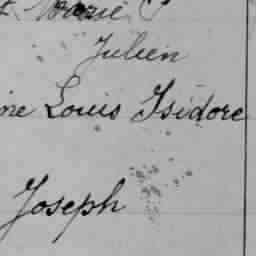 Marie
Julien
Louis Isidore
Joseph